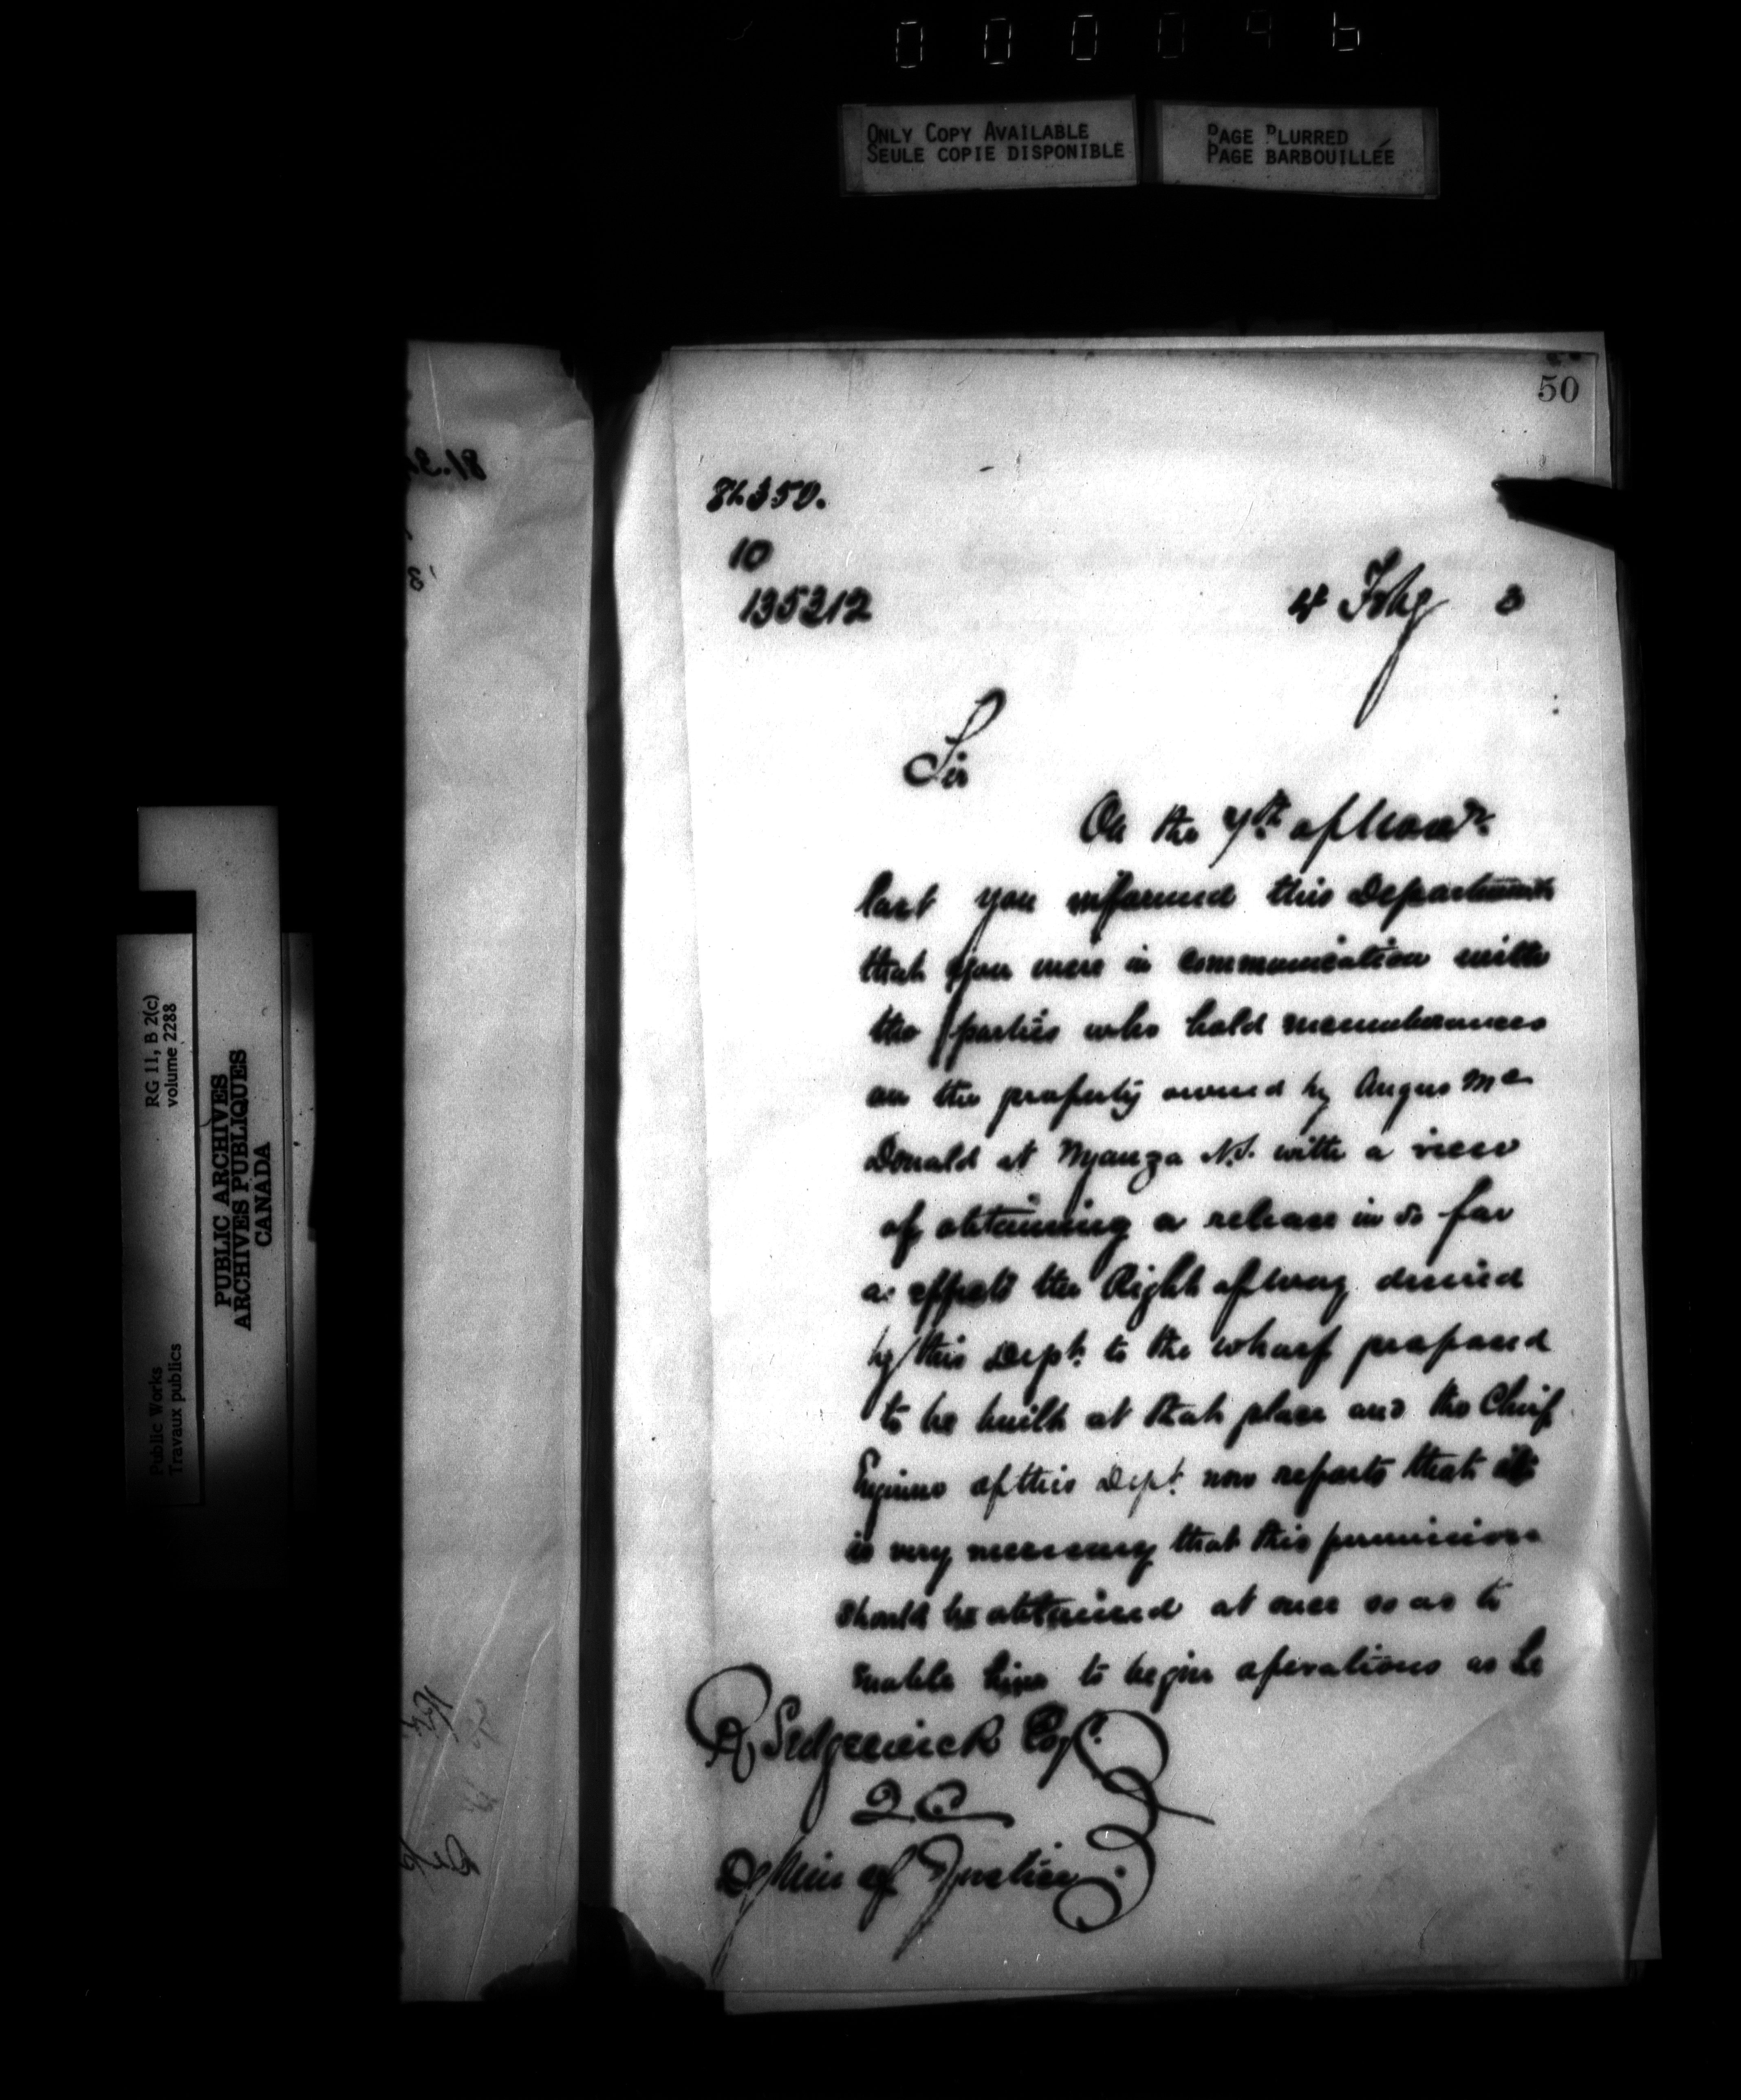 0 0 0 0 4 6
ONLY COPY AVAILABLE
SEULE COPIE DISPONIBLE
PAGE BLURRED
PAGE BARBOUILLÉE
50
10
135212
4 Feby 3
Sir
On the 7th of Novr.
last you informed this Department
that you were in communication with
the parties who hold incumbrances
on the property owned by Angus Mc
Donald at Nyanza N.S. with a view
of obtaining a release in so far
as affects the Right of way desired
by this Dept. to the wharf proposed
to be built at that place and the Chief
Engineer of this Dept. now reports that it
is very necessary that this permission
should be obtained at once so as to
enable him to begin operations as he
R Sedgewick Esq.
Q C
D/Min of Justice
RG 11, B 2(c)
volume 2288
PUBLIC ARCHIVES
ARCHIVES PUBLIQUES
CANADA
Public Works
Travaux publics